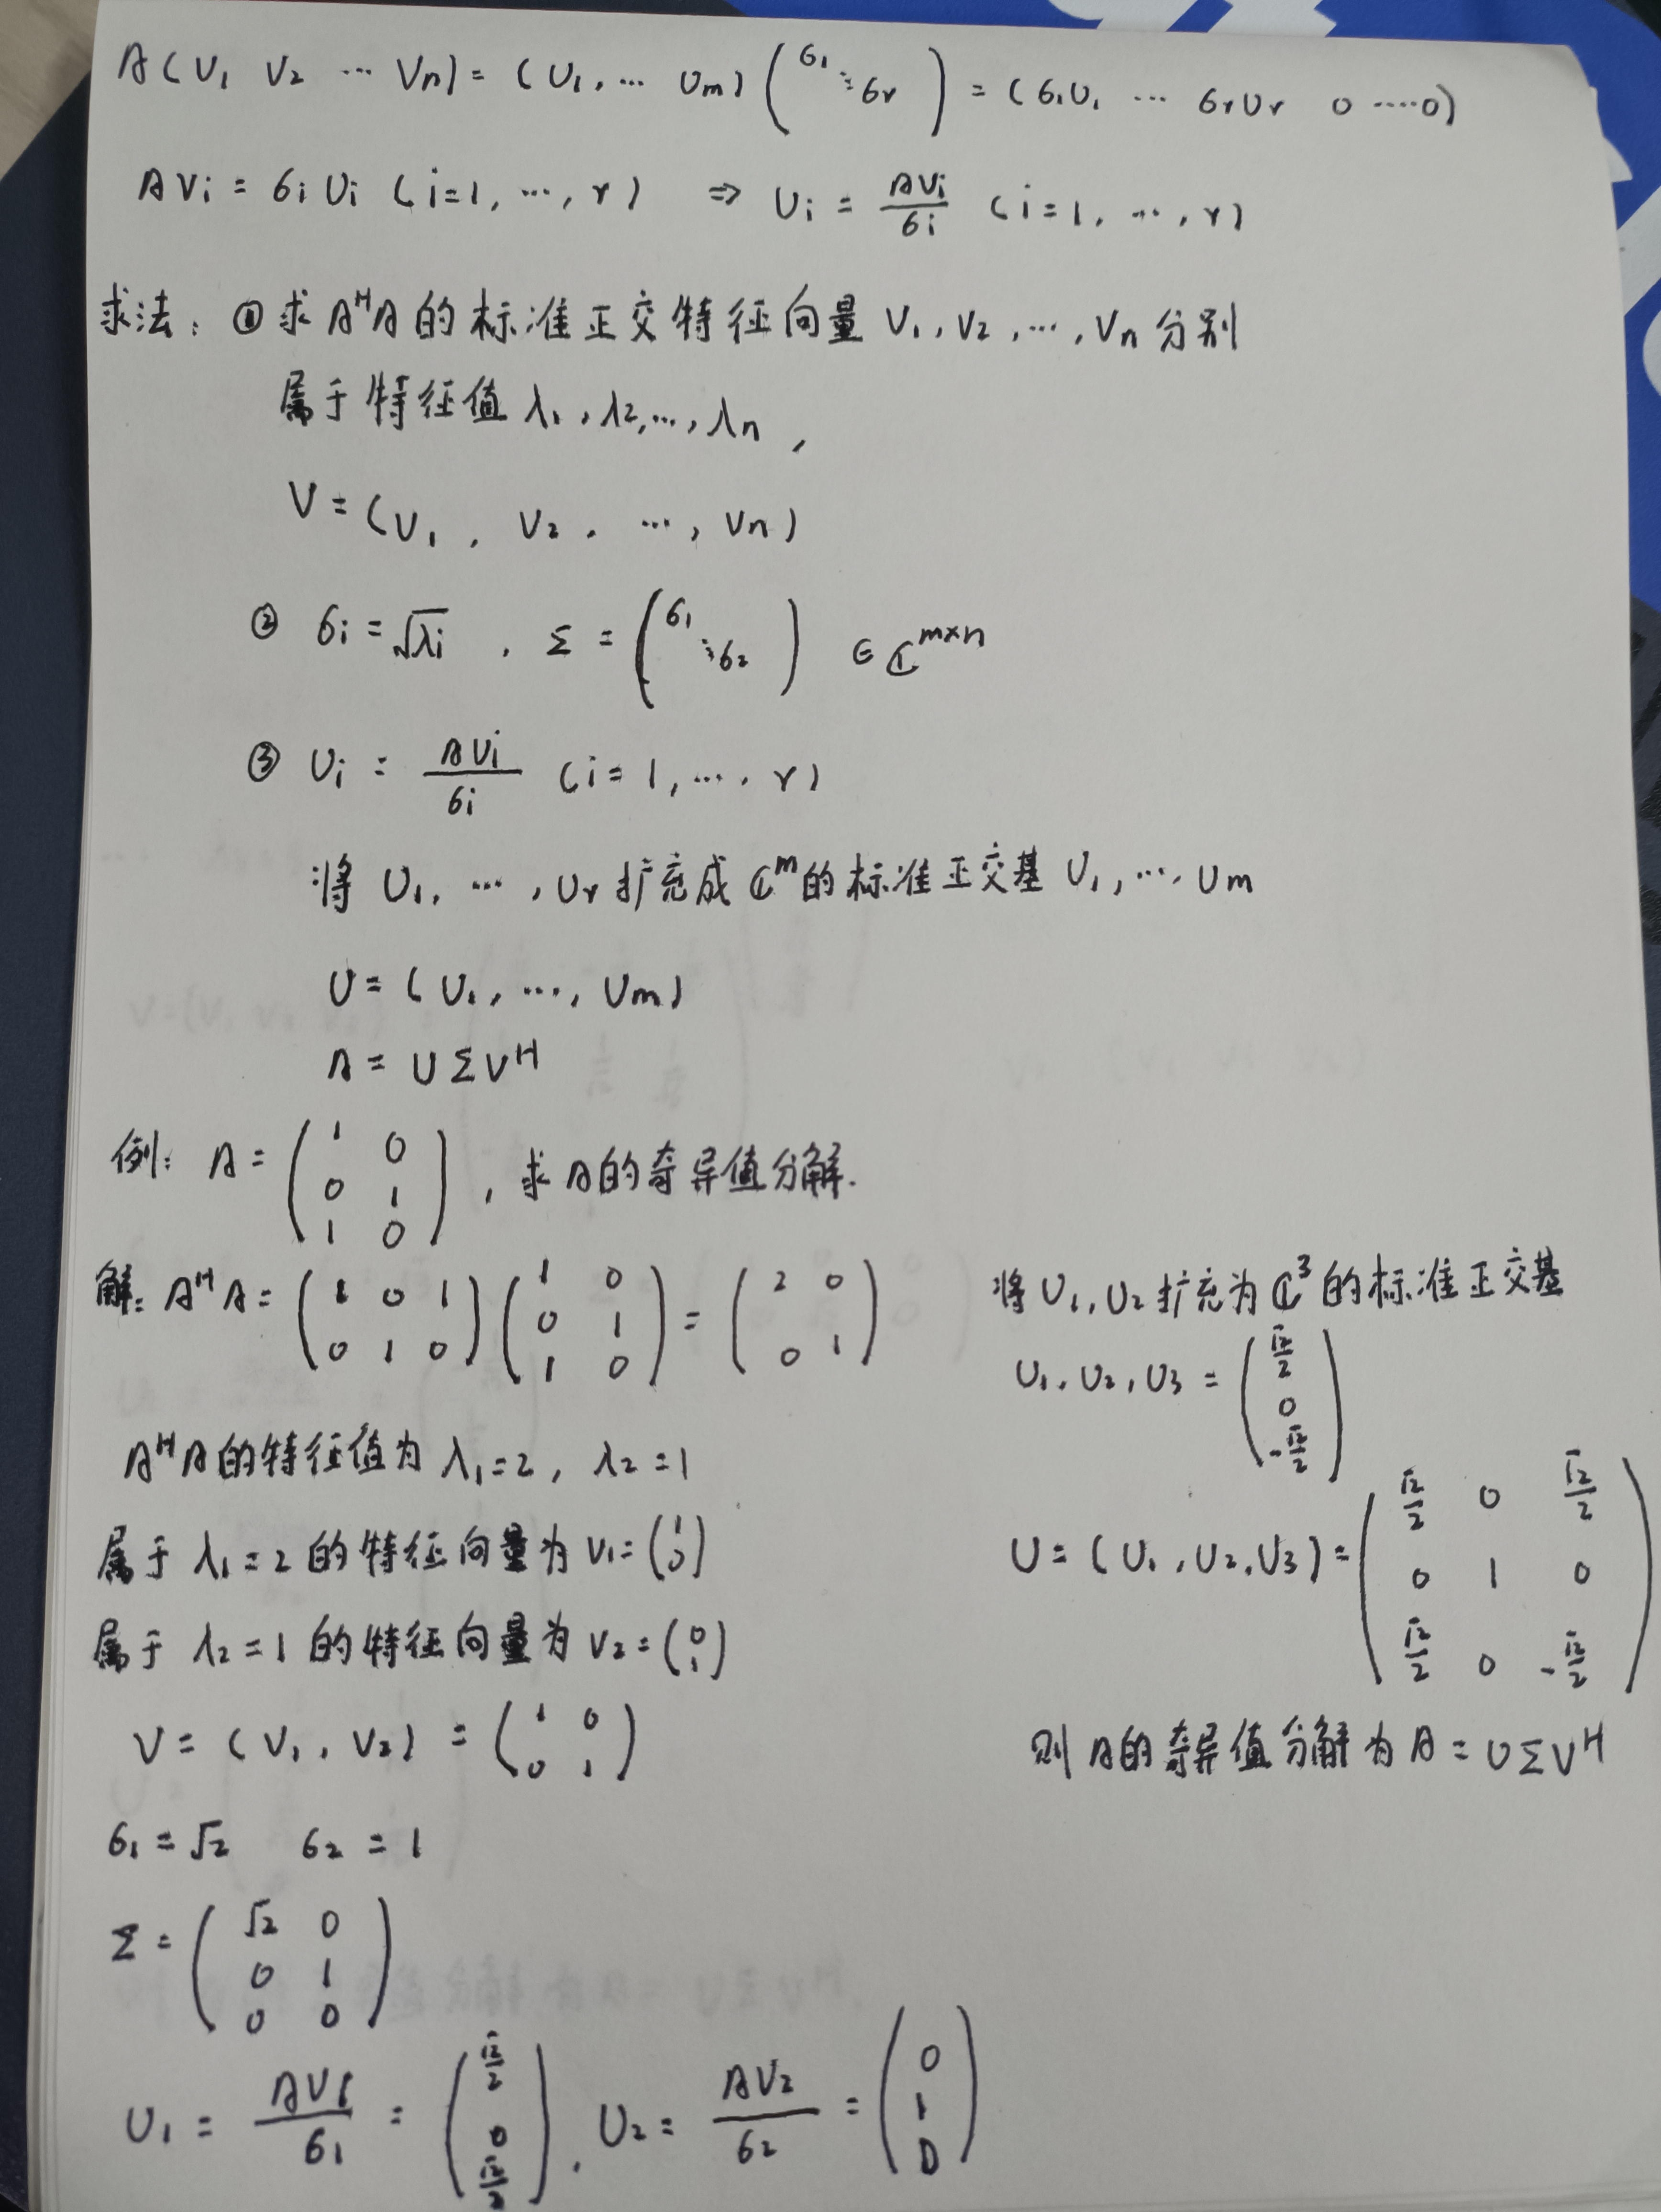 A(V₁ V₂ … Vn) = (U₁, … Um) (σ₁ ⋱ σr) = (σ₁U₁ … σrUr 0 ……0)
AVi = σiUi (i=1, …, r) ⇒ Ui = AVi/σi (i=1, …, r)
求法: ① 求AᴴA的标准正交特征向量 V₁, V₂, …, Vn 分别
属于特征值 λ₁, λ₂, …, λn,
V = (V₁, V₂, …, Vn)
② σi = √λi , Σ = (σ₁ ⋱ σ₂) ∈ ℂ^{m×n}
③ Ui = AVi/σi (i=1, …, r)
将 U₁, …, Ur 扩充成 ℂᵐ的标准正交基 U₁, …, Um
U = (U₁, …, Um)
A = UΣVᴴ
例: A = (1 0; 0 1; 1 0), 求A的奇异值分解.
解: AᴴA = (1 0 1; 0 1 0) (1 0; 0 1; 1 0) = (2 0; 0 1)
AᴴA的特征值为 λ₁=2, λ₂=1
属于 λ₁=2 的特征向量为 V₁=(1; 0)
属于 λ₂=1 的特征向量为 V₂=(0; 1)
V = (V₁, V₂) = (1 0; 0 1)
σ₁=√2 σ₂=1
Σ = (√2 0; 0 1; 0 0)
U₁ = AV₁/σ₁ = (√2/2; 0; √2/2), U₂ = AV₂/σ₂ = (0; 1; 0)
将 U₁, U₂ 扩充为 ℂ³ 的标准正交基
U₁, U₂, U₃ = (√2/2; 0; -√2/2)
U = (U₁, U₂, U₃) = (√2/2 0 √2/2; 0 1 0; √2/2 0 -√2/2)
则A的奇异值分解为 A = UΣVᴴ